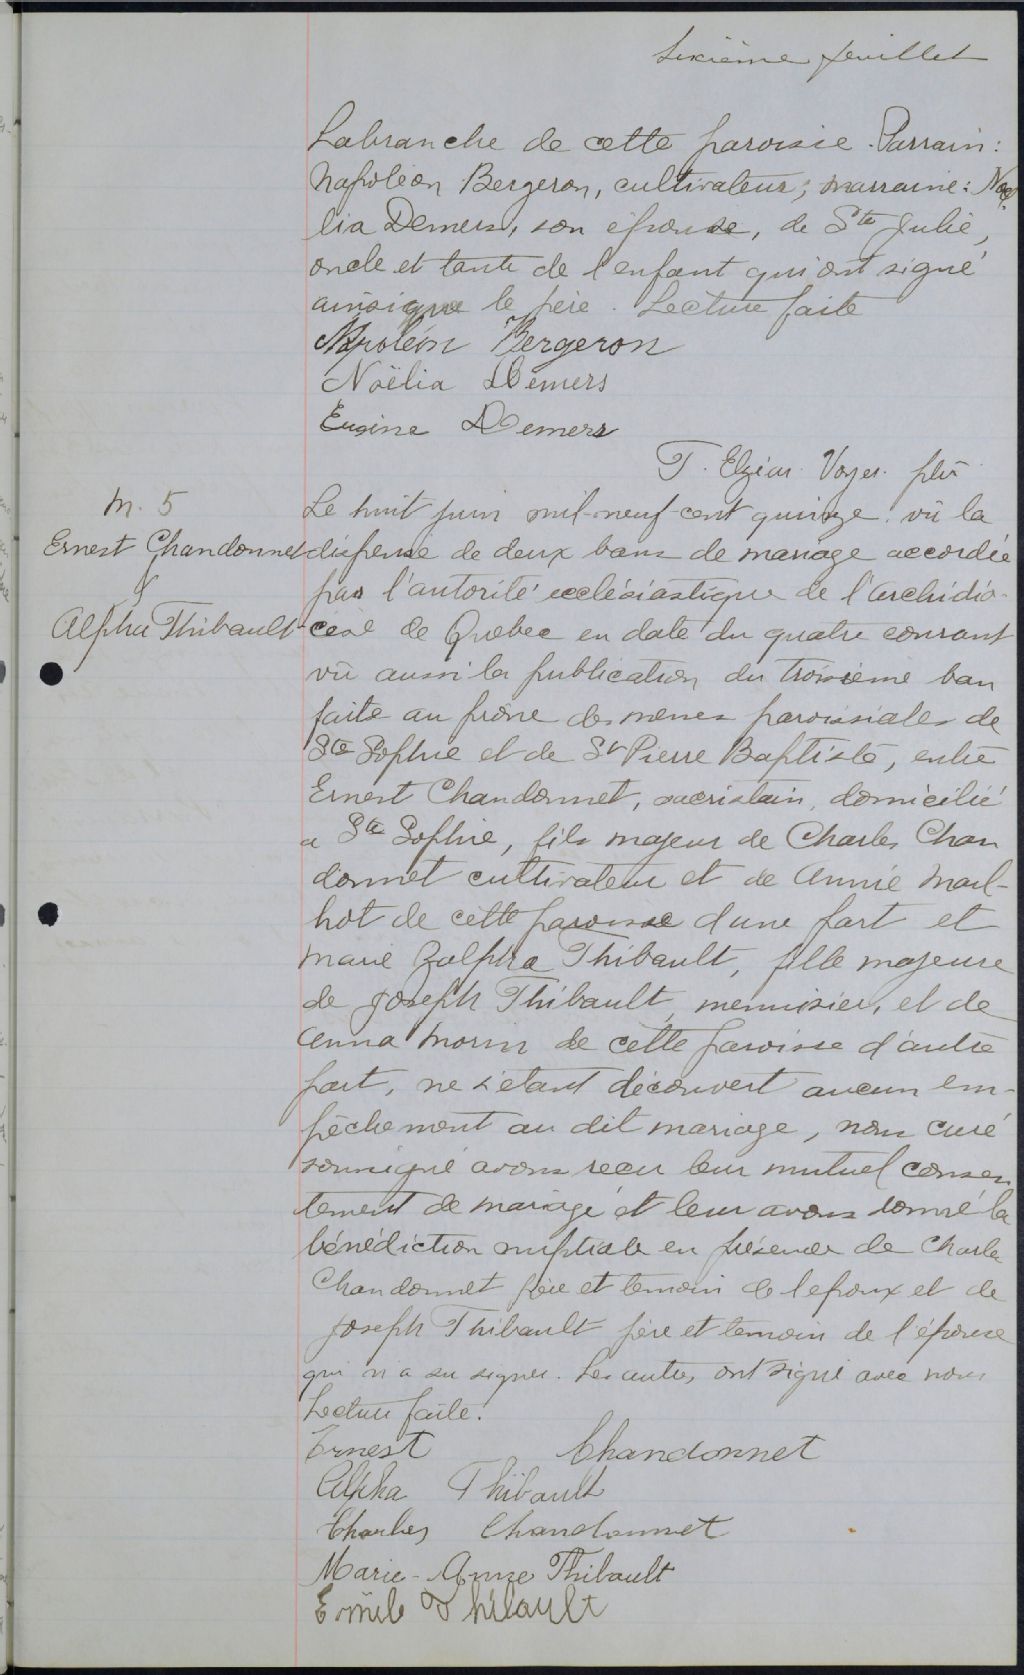 Sixième feuillet
Labranche de cette paroisse. Parrain:
Napoléon Bergeron, cultivateur; marraine: Noë
lia Demers, son épouse, de Ste Julie,
oncle et tante de l'enfant qui ont signé
ainsi que le père. Lecture faite
Napoléon Bergeron
Noëlia Demers
Eugène Demers
T. Elzéar Voyer ptre
M. 5
Ernest Chandonnet
&
Alpha Thibault
Le huit juin mil-neuf-cent quinze. vû la
dispense de deux bans de mariage accordée
par l'autorité ecclésiastique de l'archidio-
cèse de Québec en date du quatre courant
vû aussi la publication du troisième ban
faite au prône des messes paroissiales de
Ste Sophie et de St Pierre Baptiste, entre
Ernest Chandonnet, sacristain, domicilié
a Ste Sophie, fils majeur de Charles Chan
donnet cultivateur et de Annie Mail-
hot de cette paroisse d'une part et
Marie Zalpha Thibault, fille majeure
de Joseph Thibault, menuisier, et de
Anna Morin de cette paroisse d'autre
part, ne s'étant découvert aucun em-
pêchement au dit mariage, nous curé
soussigné avons recu leur mutuel consen
tement de mariage et leur avons donné la
bénédiction nuptiale en présence de Charles
Chandonnet père et temoin de l'epoux et de
Joseph Thibault père et temoin de l'épouse
qui n'a su signer. Les autres ont signé avec nous
Lecture faite.
Ernest Chandonnet
Alpha Thibault
Charles Chandonnet
Marie-Anne Thibault
Emile Thibault